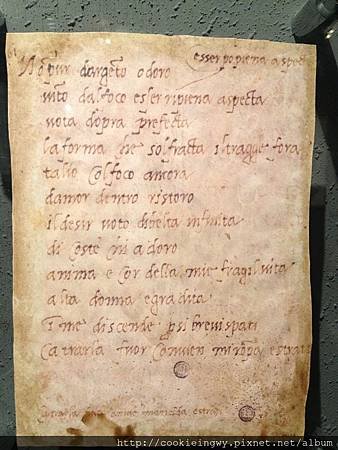 esser po piena aspec
Nō pur dargēto odoro
vīto dalfoco esser ripiena aspecta
vota dopra prefecta
la forma che sol fracta iltragge fora
tal io col foco ancora
damor dentro ristoro
il desir voto dibelta infinita
di coste chi adoro
anima e cor della mie fragil vita
alta donna e gradita
ī me discende p sì brevi spati
ca trarla fuor convien mi rōpa e strati
http://cookieingwy.pixnet.net/album